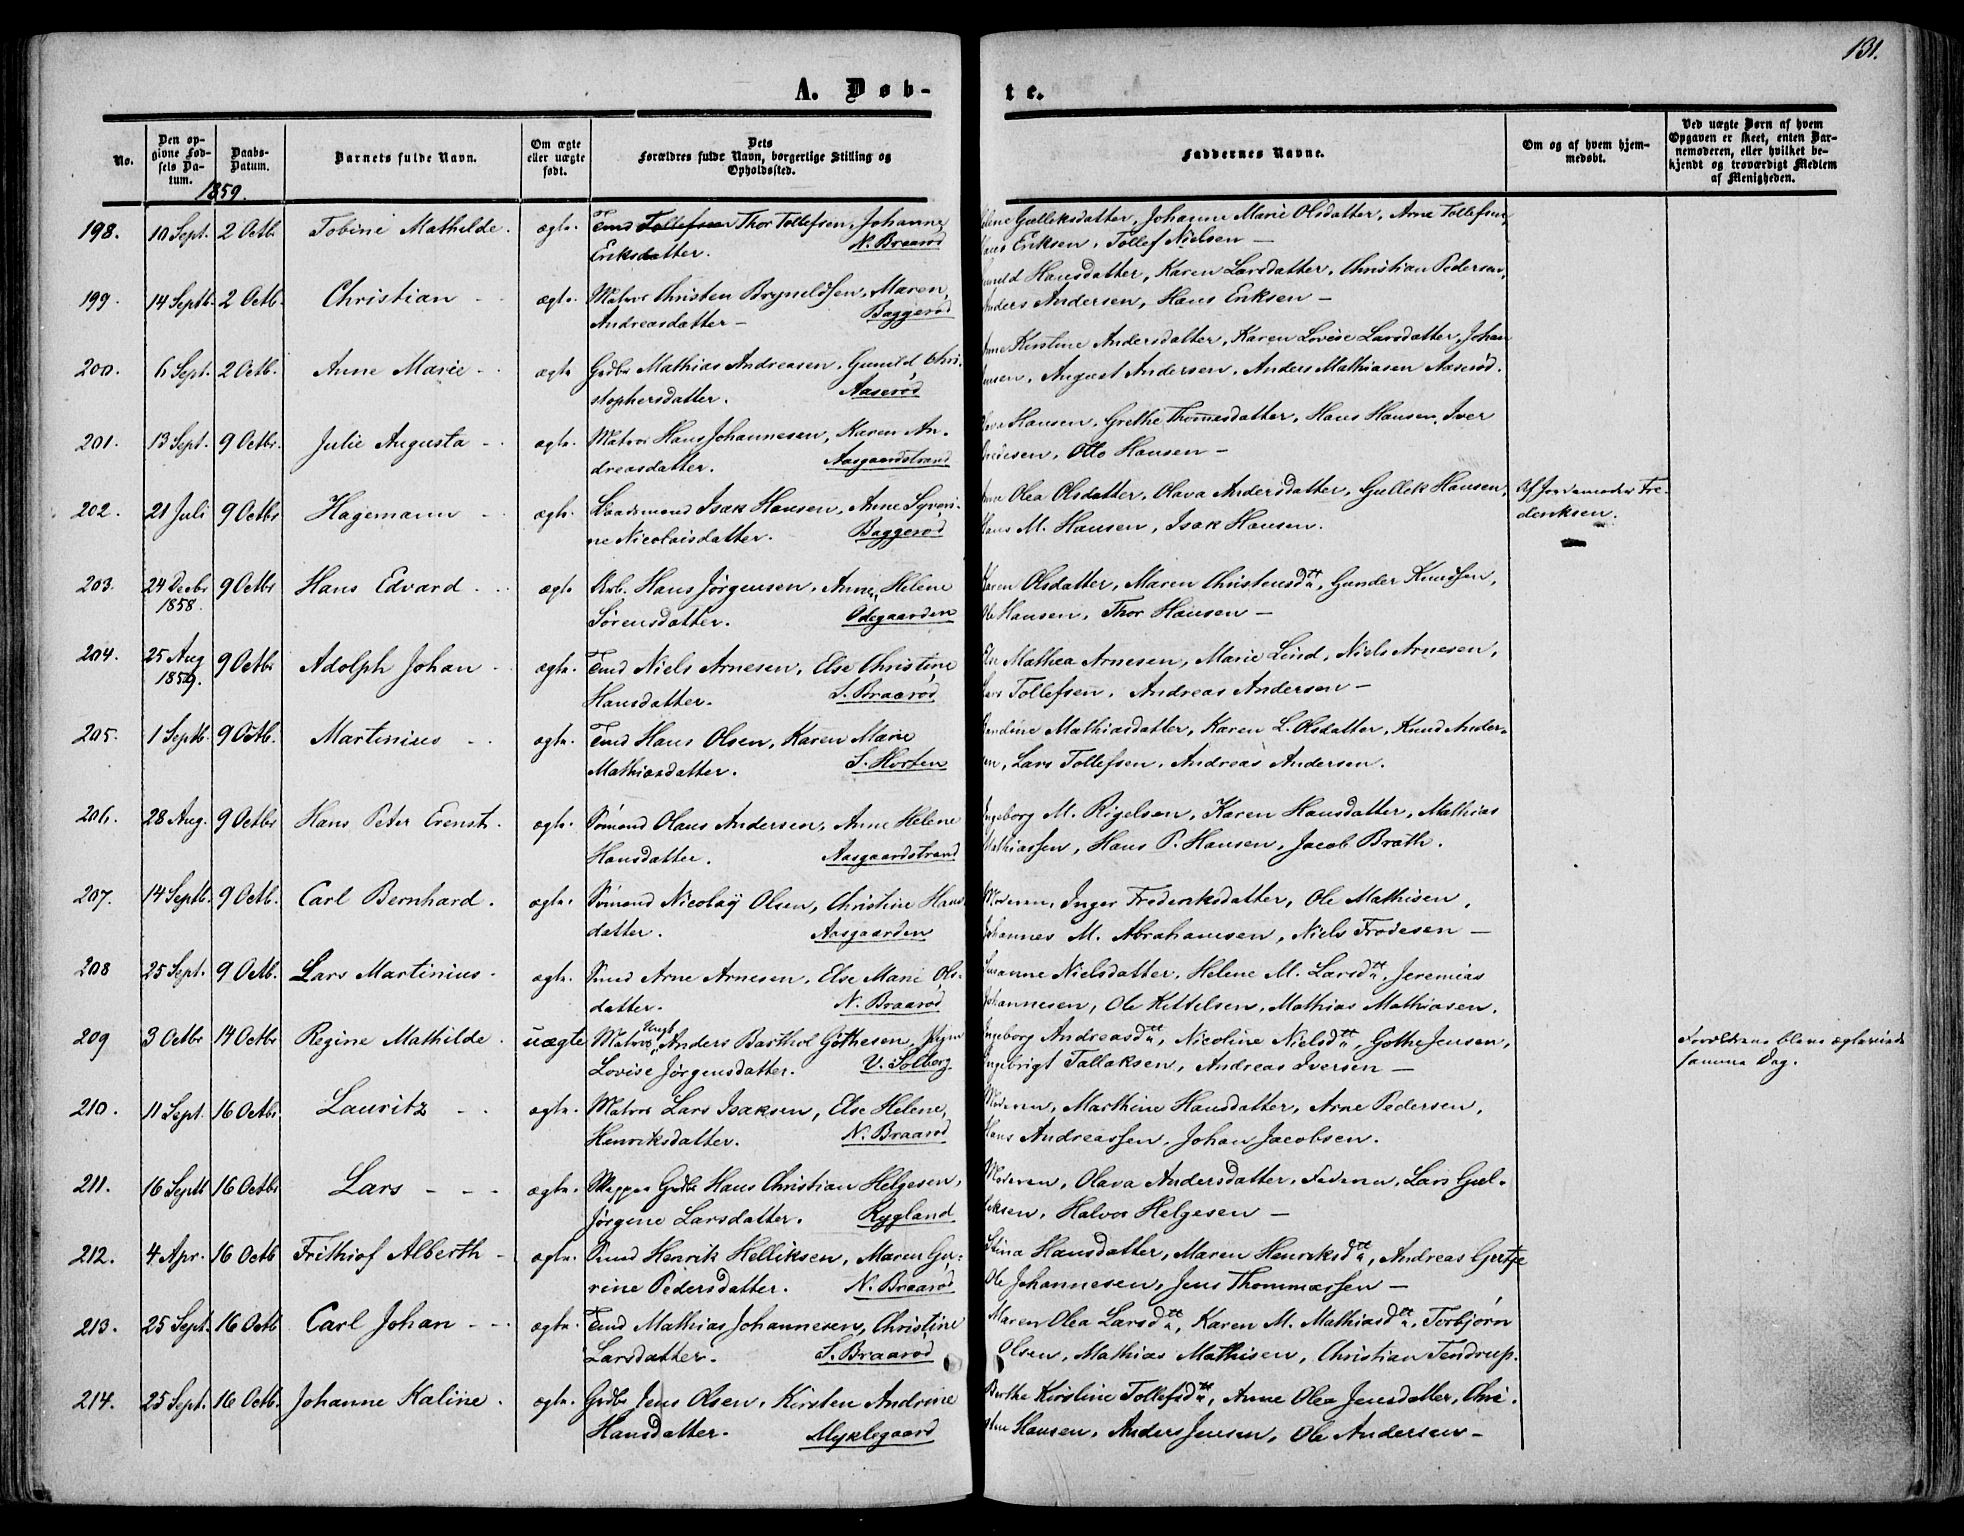 131.
A. Døb-
te.
No.
Den op-
givne Fød-
sels Da-
tum.
Daabs-
Datum.
Barnets fulde Navn.
Om ægte
eller uægte
født.
Dets
Forældres fulde Navn, borgerlige Stilling og
Opholdssted.
Faddernes Navne.
Om og af hvem hjem-
medøbt.
Ved uægte Børn af hvem
Opgaven er skeet, enten Bar-
nemoderen, eller hvilket be-
kjendt og troværdigt Medlem
af Menigheden.
1859.
198. 10 Sept. 2 Octb. Tobine Mathilde. ægte. Tollefsen Thor Tollefsen, Johanne
Eriksdatter. N. Braarød
Gulleksdatter, Johanne Marie Olsdatter, Arne Tollefsen,
Eriksen, Tollef Nielsen —
199. 14 Septb. 2 Octb. Christian - - ægte. Matros Christen Bryneldsen, Maren
Andreasdatter — Baggerød
Hansdatter, Karen Larsdatter, Christian Pedersen,
Anders Andersen, Hans Eriksen —
200. 6 Sept. 2 Octb. Anne Marie - - ægte Gdbr Mathias Andreasen, Gunild Chri-
stophersdatter. Aaserød
Anne Kirstine Andersdatter, Karen Lovise Larsdatter, Johan
August Andersen, Anders Mathiasen Aaserød.
201. 13 Sept. 9 Octbr. Julie Augusta - - ægte. Matros Hans Johannesen, Karen An-
dreasdatter. Aasgaardstrand
Hansen, Grethe Thomasdatter, Hans Hansen, Iver
Otto Hansen —
202. 21 Juli 9 Octbr Hagemann - - ægte. Isak Hansen, Anne Syveri-
ne Nicolaisdatter. Baggerød
Olea Olsdatter, Olava Andersdatter, Gullik Hansen,
Hans M. Hansen, Isak Hansen.
Af Jordemoder Fre-
deriksen.
203. 24 Decbr 9 Octbr Hans Edvard - - ægte. Hans Jørgensen, Anne Helene
1858.
Sørensdatter. Ødegaarden
Karen Olsdatter, Maren Christensdtt, Gunder Knudsen,
Ole Hansen, Thor Hansen —
204. 25 Aug 9 Octbr Adolph Johan - - ægte. Niels Arnesen, Else Christine
1859.
Hansdatter. S. Braarød
Else Mathea Arnesen, Marie Lind, Niels Arnesen,
Lars Tollefsen, Andreas Andersen —
205. 1 Septb. 9 Octb. Martinius - - ægte. Hans Olsen, Karen Marie
Mathiasdatter. S. Horten
Mathiasdatter, Karen L. Olsdatter, Knud Ander-
sen, Lars Tollefsen, Andreas Andersen.
206. 28 Aug. 9 Octbr Hans Peter Erenst. ægte. Sømand Olaus Andersen, Anne Helene
Hansdatter. Aasgaardstrand
Ingeborg M. Rigelsen, Karen Hansdatter, Mathias
Mathiassen, Hans P. Hansen, Jacob Bråth.
207. 14 Septb. 9 Octb. Carl Bernhard. ægte. Sømand Nicolay Olsen, Christine Hans-
datter. Aasgaarden
Moderen, Inger Frederiksdatter, Ole Mathisen,
Johannes M. Abrahamsen, Niels Frodesen —
208 25 Sept. 9 Octb. Lars Martinius. ægte. Arne Arnesen, Else Marie Ols-
datter. N. Braarød
Susanne Nielsdatter, Helene M. Larsdtt, Jeremias
Johannesen, Ole Kittelsen, Mathias Mathiasen.
209 3 Octbr 14 Octbr Regine Mathilde. uægte Matros Ungk. Anders Barthol Gøthesen,
Lovise Jørgensdatter. V. Solberg
Ingeborg Andreasdtt, Nicoline Nielsdtt, Gothe Jensen,
Ingebrigt Tallaksen, Andreas Iversen —
Forældrene bleve ægteviede
samme Dag.
210. 11 Sept. 16 Octbr. Lauritz - - ægte. Matros Lars Isaksen, Else Helene
Henriksdatter. N. Braarød
Moderen, Marthine Hansdatter, Arne Pedersen,
Hans Andreassen, Johan Jacobsen.
211. 16 Septb 16 Octbr Lars - - - ægte. Skipper Gdbr Hans Christian Helgesen,
Jørgene Larsdatter. Rygland
Moderen, Olava Andersdatter, Faderen, Lars Gul-
leksen, Halvor Helgesen —
212. 4 Apr. 16 Octb Frithiof Alberth - ægte. Henrik Helliksen, Maren Gu-
rine Pedersdatter. N. Braarød
Stina Hansdatter, Maren Henriksdtt, Andreas
Ole Johannesen, Jens Thommassen —
213. 25 Sept. 16 Octb Carl Johan - - ægte. Mathias Johannesen, Christine
Larsdatter. S. Braarød
Maren Olea Larsdtt, Karen M. Mathiasdtt, Torbjørn
Olsen, Mathias Mathisen, Christian Tendrup.
214. 25 Sept. 16 Octb. Johanne Kaline. ægte. Gdbr Jens Olsen, Kirsten Andrine
Hansdatter. Myklegaard
Berthe Kirstine Tollefsdtt, Anne Olea Jensdatter, Chri-
sten Hansen, Anders Jensen, Ole Andersen —